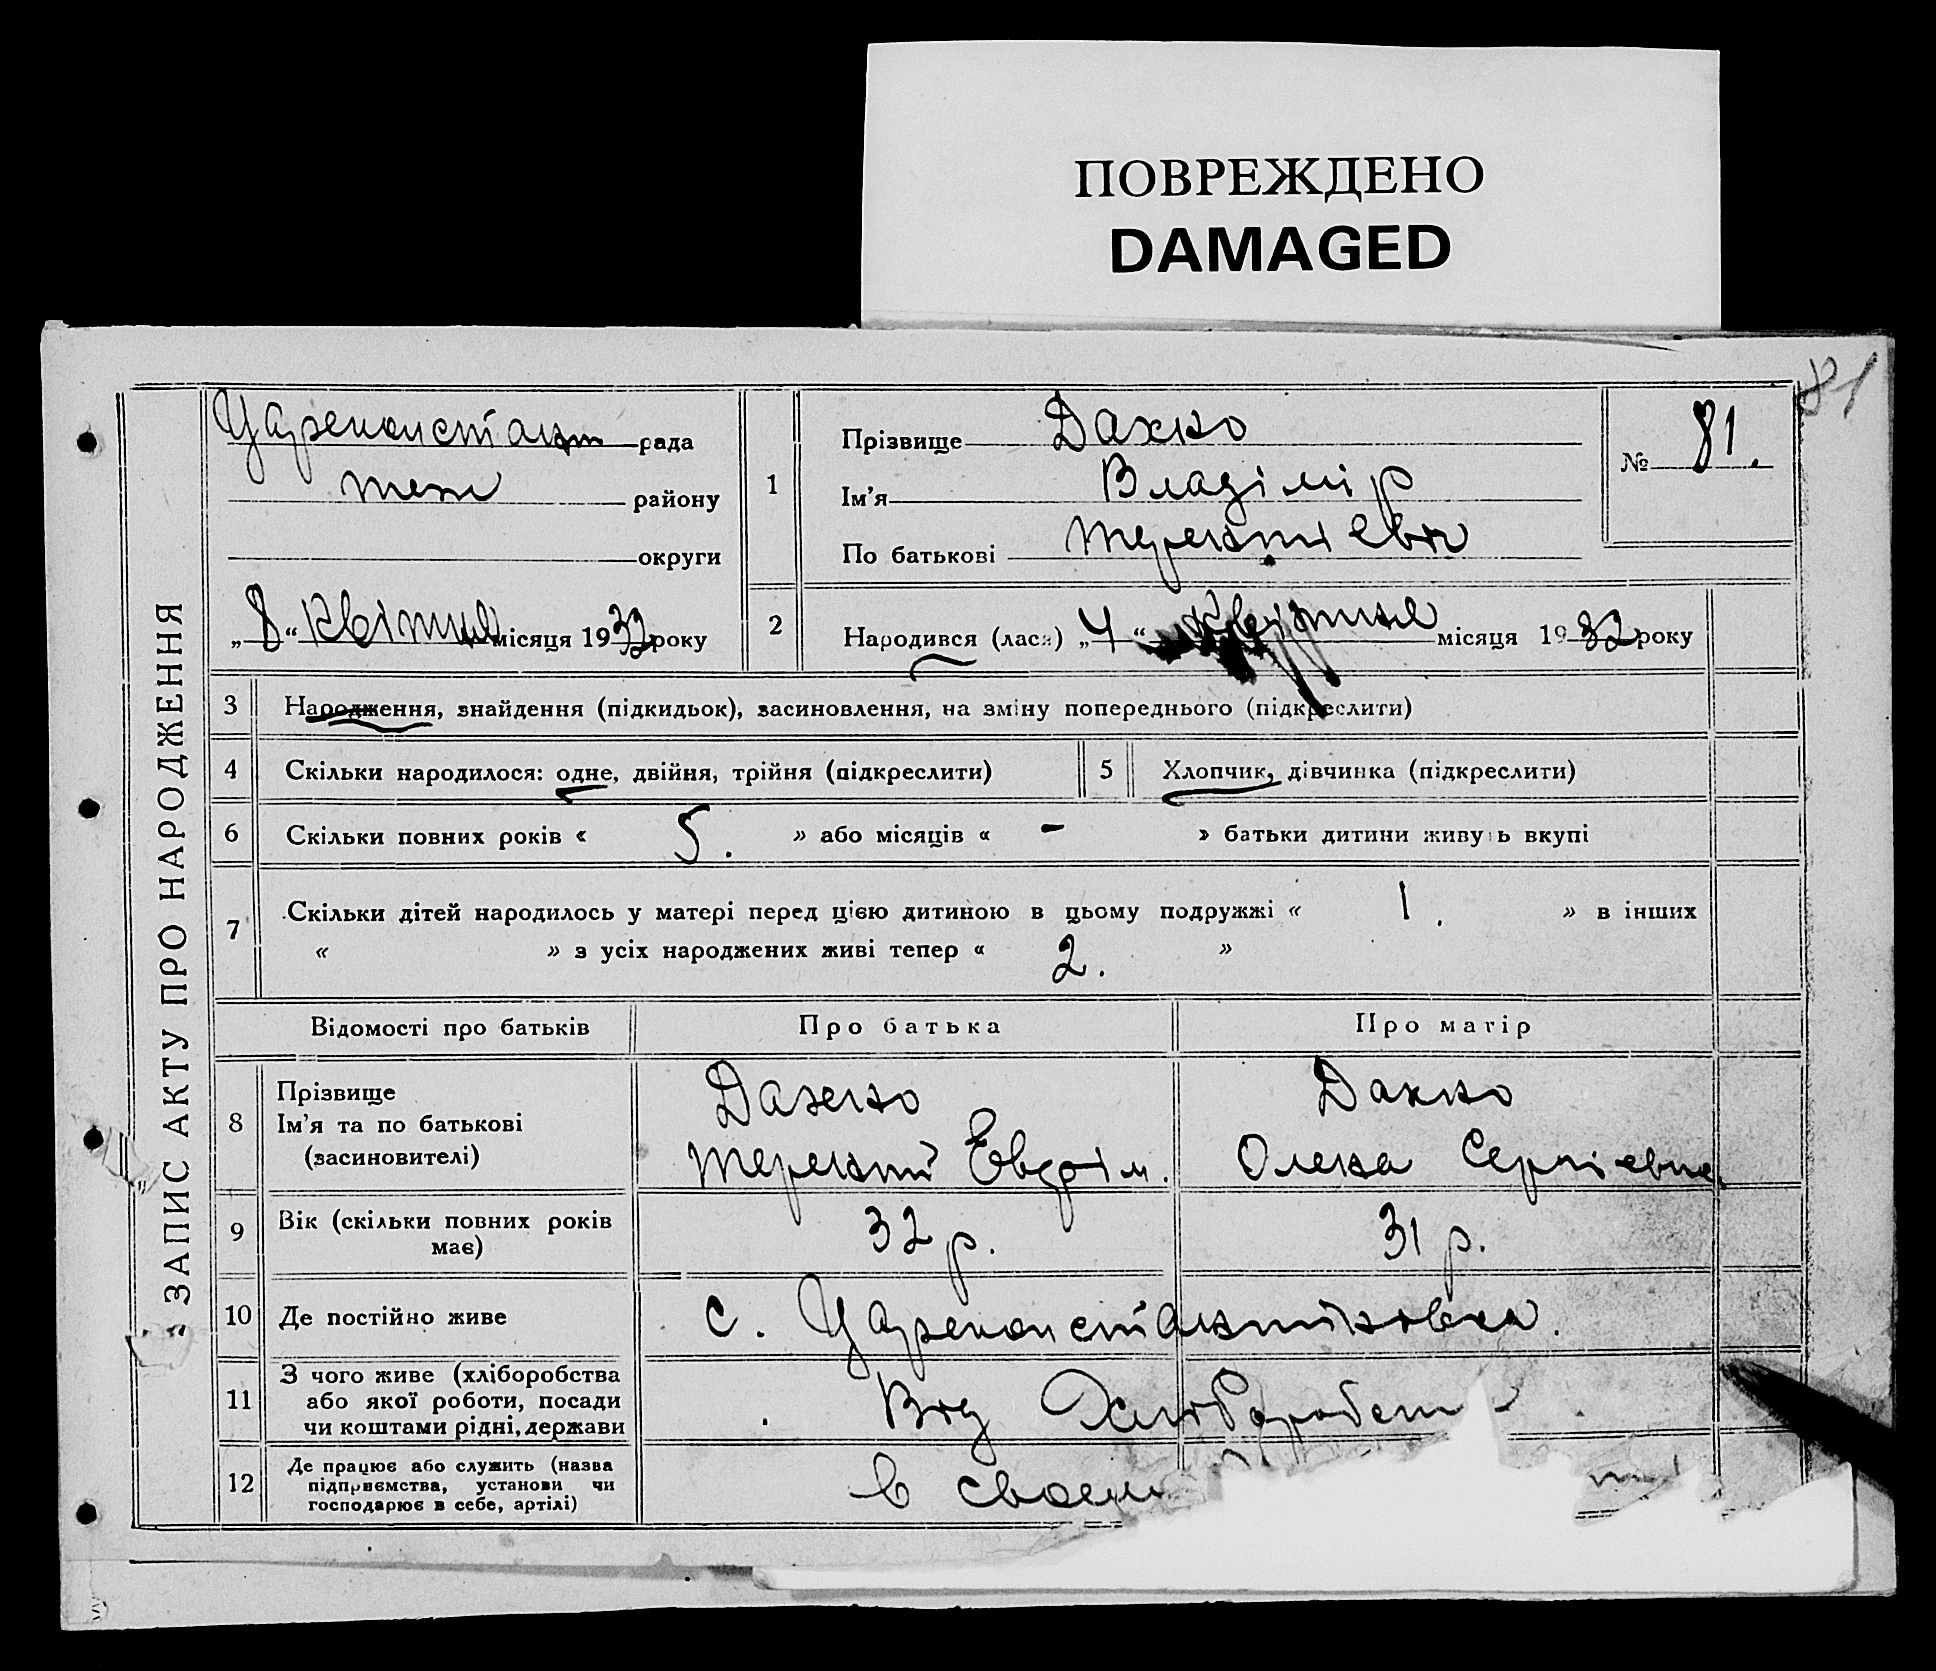 ПОВРЕЖДЕНО
DAMAGED
81
ЗАПИС АКТУ ПРО НАРОДЖЕННЯ
Цареконстант рада
теж району
округи
„8“ Квітня місяця 1932 року
1
Прізвище Дахно
Ім'я Владімір
По батькові Терентіевич
№ 81.
2
Народився (лася) „4“ Квітня місяця 1932 року
3 Народження, знайдення (підкидьок), засиновлення, на зміну попереднього (підкреслити)
4 Скільки народилося: одне, двійня, трійня (підкреслити)
5 Хлопчик, дівчинка (підкреслити)
6 Скільки повних років « 5. » або місяців « - » батьки дитини живуть вкупі
7 Скільки дітей народилось у матері перед цією дитиною в цьому подружжі « 1. » в інших
« » з усіх народжених живі тепер « 2. »
Відомості про батьків Про батька Про матір
8 Прізвище
Ім'я та по батькові
(засиновителі)
Дахно
Терентій Евдокім.
Дахно
Олена Сергіевна
9 Вік (скільки повних років
має)
32 р. 31 р.
10 Де постійно живе с. Цареконстантиновка.
11 З чого живе (хліборобства
або якої роботи, посади
чи коштами рідні, держави
Від Хліборобст
12 Де працює або служить (назва
підприємства, установи чи
господарює в себе, артілі)
в своєм